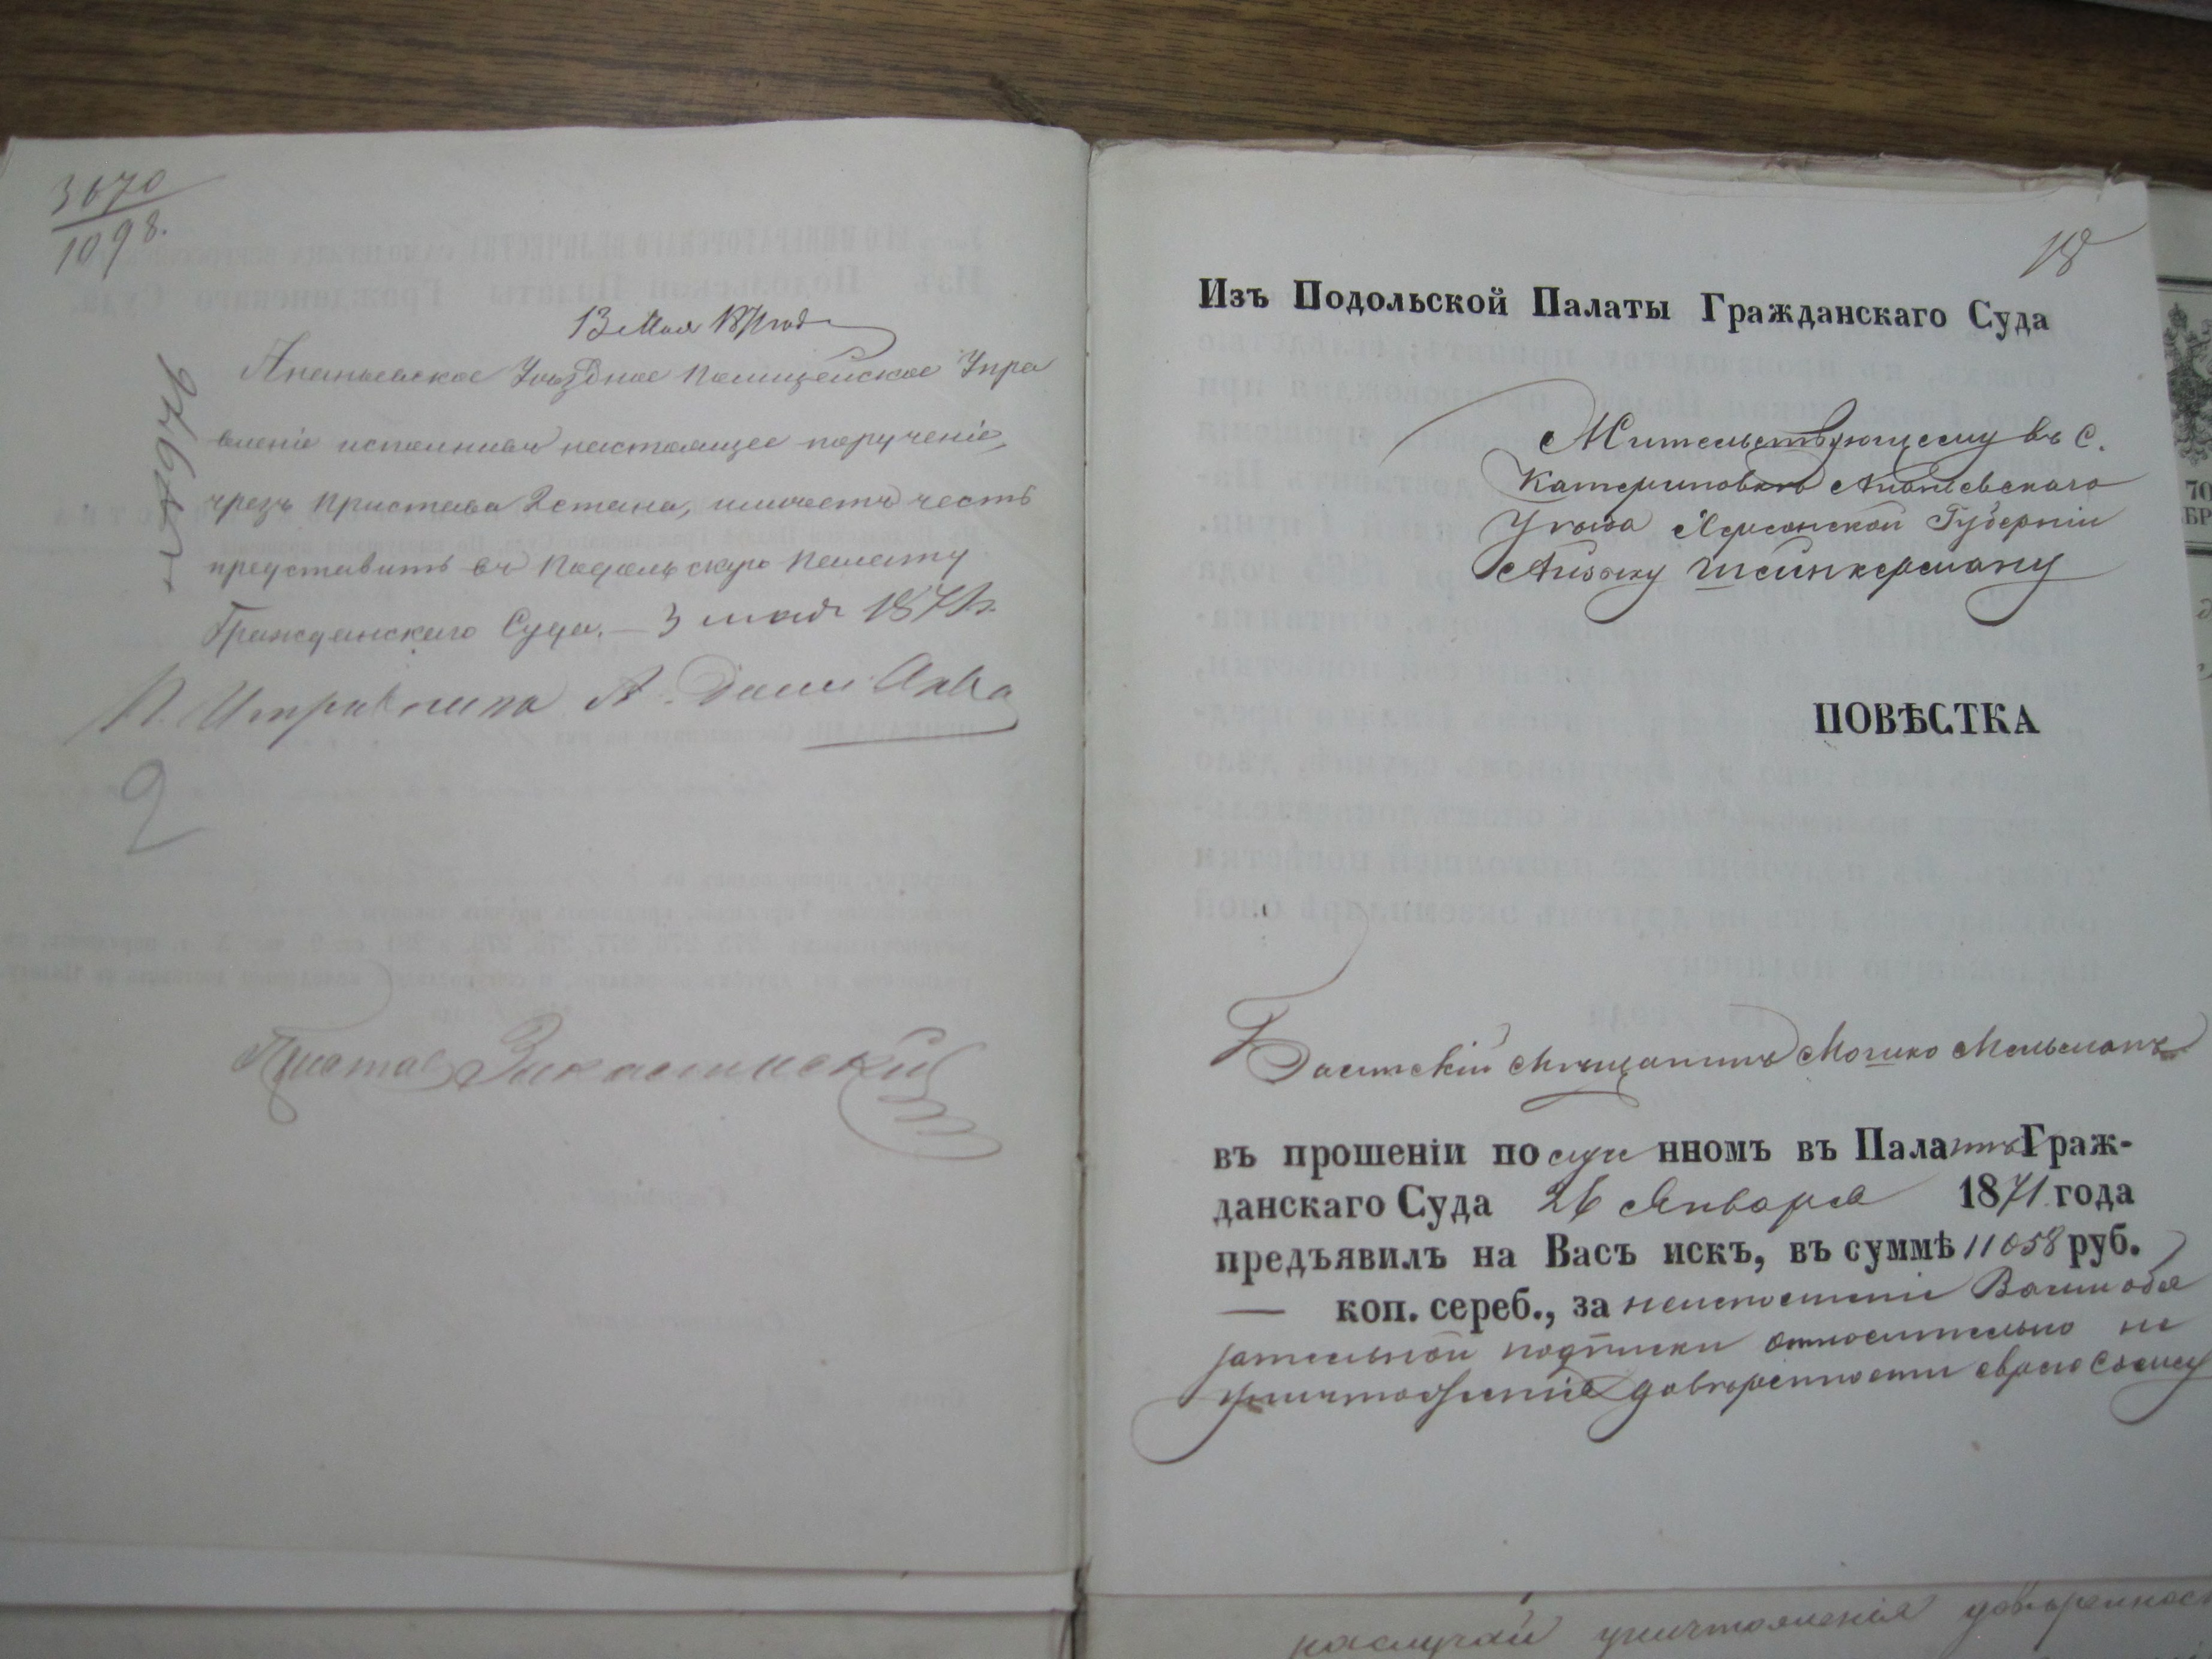 3670
1098.
13 Мая 1871 год
Ананьевское Уѣздное Полицейское Упра
вленіе исполнивъ настоящее порученіе,
чрезъ Пристава 2 стана, имѣетъ честь
представить въ Подольскую Палату
Гражданскаго Суда. — 3 мая 1871 г.
И. Исправника А.
№ 7976
2
Приставъ
18
Изъ Подольской Палаты Гражданскаго Суда
Жительствующему въ с.
Катериновкѣ Ананьевскаго
Уѣзда Херсонской Губерніи
Айзыку Шейнкерману
ПОВѢСТКА
Балтскій мѣщанинъ Мошко Мельманъ
въ прошеніи поданнномъ въ Палатѣ Граж-
данскаго Суда 26 Января 1871 года
предъявилъ на Васъ искъ, въ суммѣ 11058 руб.
— коп. сереб., за неисполненіе Вами обя
зательной подписки относительно не
уничтоженія довѣренности еврею
на случай уничтоженія довѣренност
70
БР